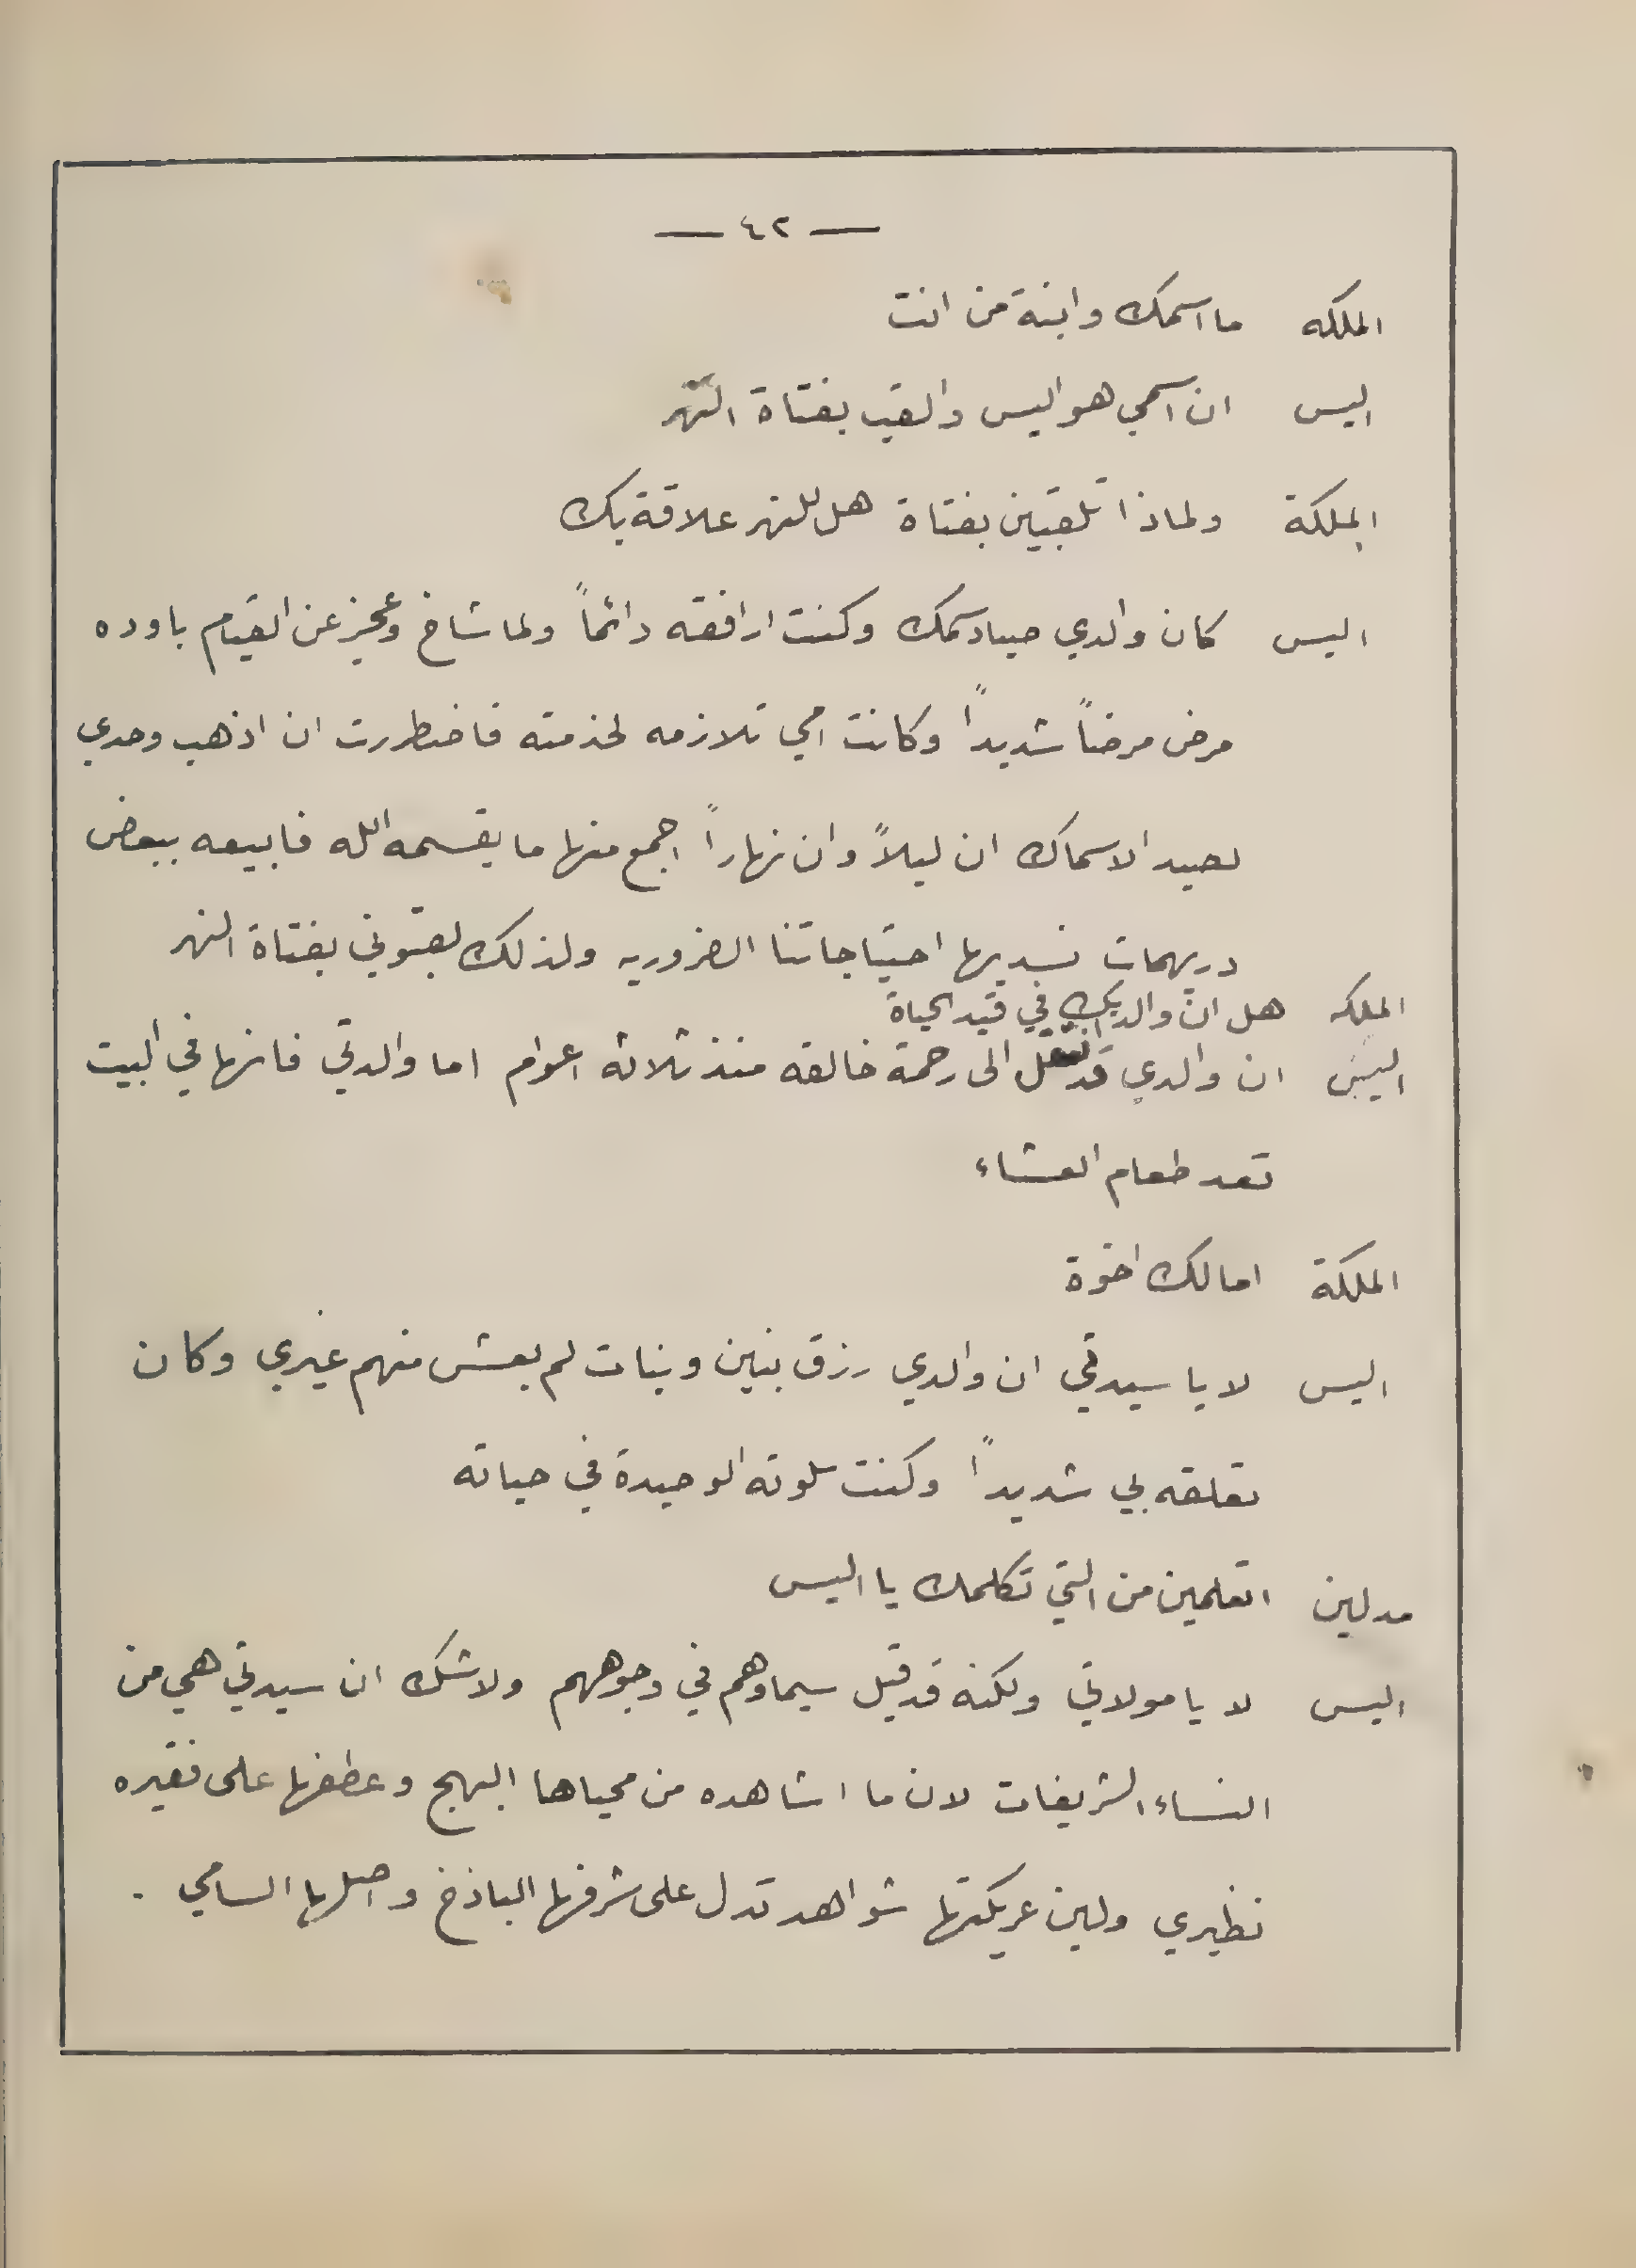 — ٤٢ —
الملكه ما اسمك وابنة من انت
اليس ان اسمي هو اليس والقب بفتاة النهر
الملكة ولماذا تلقبين بفتاة هل للنهر علاقة بك
اليس كان والدي صياد سمك وكنت ارافقه دائماً ولما شاخ وعجز عن القيام باوده
مرض مرضاً شديداً وكانت امي تلازمه لخدمته فاضطررت ان اذهب وحدي
لصيد الاسماك ان ليلاً وان نهاراً اجمع منها ما يقسمه الله فابيعه ببعض
دريهمات نسد بها احتياجاتنا الضروريه ولذلك لقبوني بفتاة النهر
الملكه هل ان والديك في قيد الحياة
اليس ان والدي قد انتقل الى رحمة خالقه منذ ثلاثه اعوام اما والدتي فانها في البيت
تعد طعام العشاء
الملكة اما لك اخوة
اليس لا يا سيدتي ان والدي رزق بنين وبنات لم يعش منهم غيري وكان
تعلقه بي شديداً وكنت سلوته الوحيدة في حياته
مدلين اتعلمين من التي تكلمك يا اليس
اليس لا يا مولاتي ولكنه قد قيل سيماوهم في وجوههم ولا شك ان سيدتي هي من
النساء الشريفات لان ما اشاهده من محياها البهج وعطفها على فقيره
نظيري ولين عريكتها شواهد تدل على شرفها الباذخ واصلها السامي .